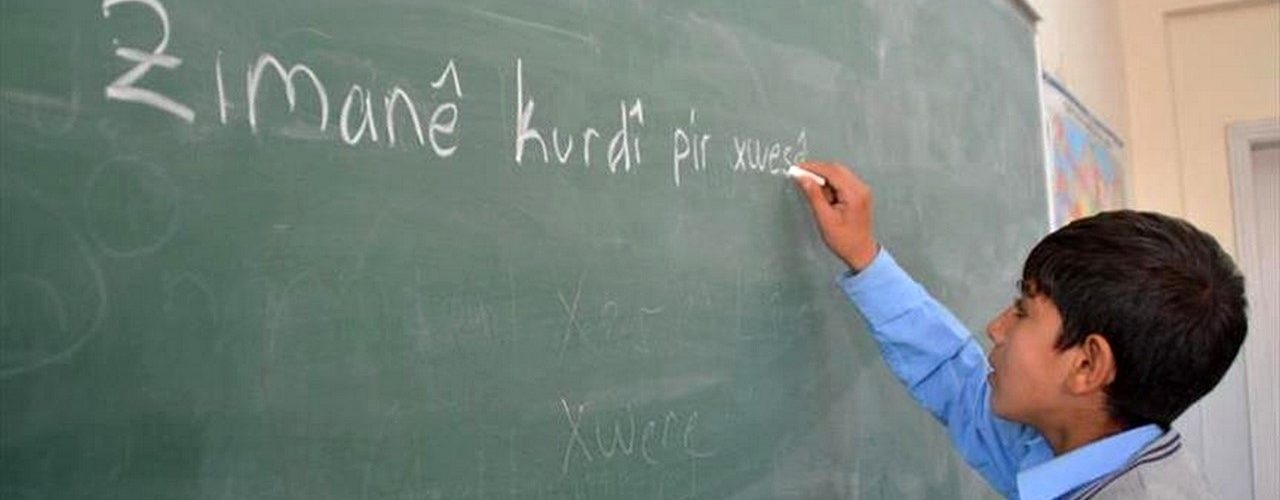 Zimanê kurdî pir xwesê
Xwere